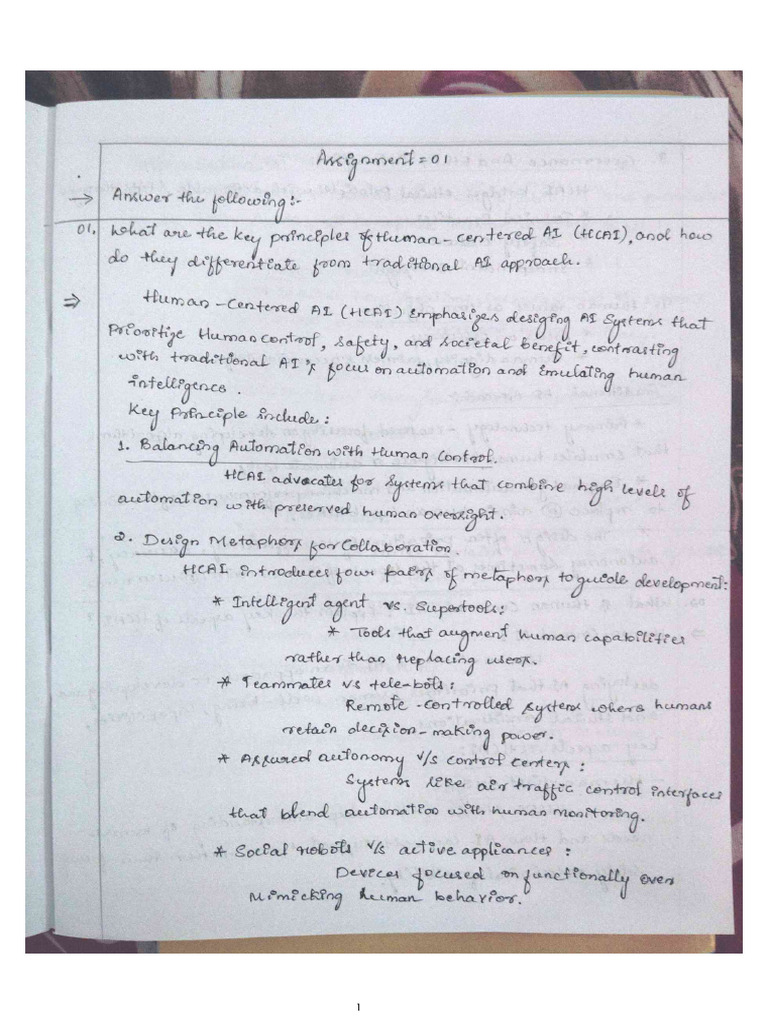 Assignment = 01
→ Answer the following:-
01. What are the key principles of Human-centered AI (HCAI), and how
do they differentiate from traditional AI approach.
⇒ Human-Centered AI (HCAI) Emphasizes desiging AI Systems that
Prioritize Human control, safety, and societal benefit, contrasting
with traditional AI's focus on automation and Emulating human
intelligence.
Key Principle include:
1. Balancing Automation with Human Control.
HCAI advocates for systems that combine high levels of
automation with preserved human oversight.
2. Design Metaphors for Collaboration.
HCAI introduces four pairs of metaphors to guide development:
* Intelligent agent vs. Supertools:
* Tools that augment human capabilities
rather than replacing users.
* Teammates vs tele-bots:
Remote-controlled systems where humans
retain decision-making power.
* Assured autonomy v/s control centers:
Systems like air traffic control interfaces
that blend automation with human monitoring.
* Social robots v/s active applicances:
Devices focused on functionally over
Mimicking human behavior.
1